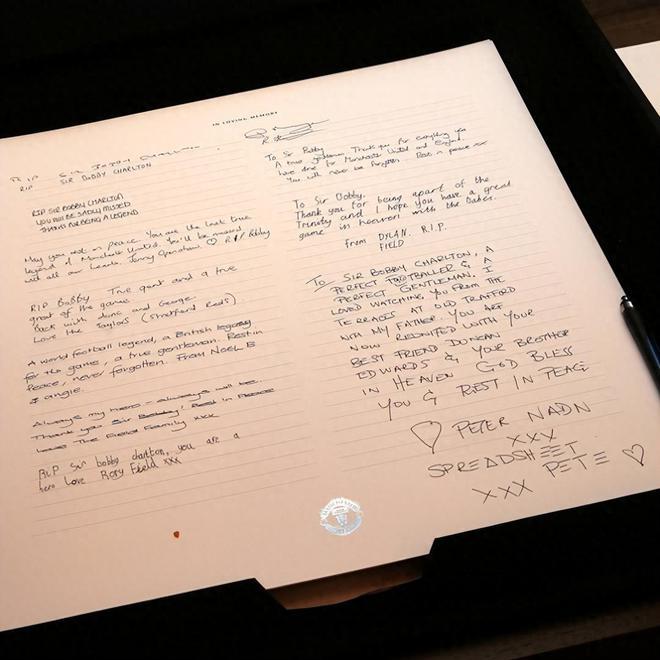 IN LOVING MEMORY
RIP Sir Bobby
RIP SIR BOBBY CHARLTON
RIP SIR BOBBY CHARLTON
YOU WILL BE SADLY MISSED
THANKS FOR BEING A LEGEND
May you rest in peace. You are the last true
legend of Manchester United. You'll be missed
by all our hearts. Jenny Openshaw ♡ RIP Bobby
RIP Bobby True giant and a true
great of the game
Back with Dunc and George.
Love the Saylors (Stretford Reds)
A world football legend, a British legend
for the game, a true gentleman. Rest in
Peace, never forgotten. From Noel E
& angie.
Always my hero - always will be.
Thank you Sir Bobby. Rest in Peace
love The Field Family xxx
RIP Sir bobby charlton, you are a
hero Love Rory Field xxx
To Sir Bobby
A true gentleman. Thank you for everything you
have done for Manchester United and England.
You will never be forgotten. Rest in peace
To Sir Bobby.
Thank you for being apart of the
Trinity and I hope you have a great
game in heaven with the babes.
from DYLAN. R.I.P.
FIELD
To SIR BOBBY CHARLTON, A
PERFECT FOOTBALLER & A
PERFECT GENTLEMAN. I
LOVED WATCHING YOU FROM THE
TERRACES AT OLD TRAFFORD
WITH MY FATHER. YOU ARE
NOW REUNITED WITH YOUR
BEST FRIEND DUNCAN
EDWARDS & YOUR BROTHER
IN HEAVEN GOD BLESS
YOU & REST IN PEACE
♡ PETER NADN
XXX
SPREADSHEET
XXX PETE ♡